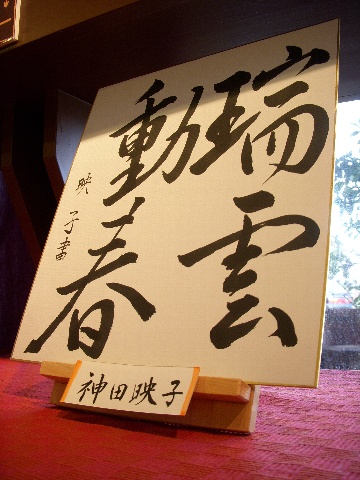 瑞雲
動春
映子書
神田映子